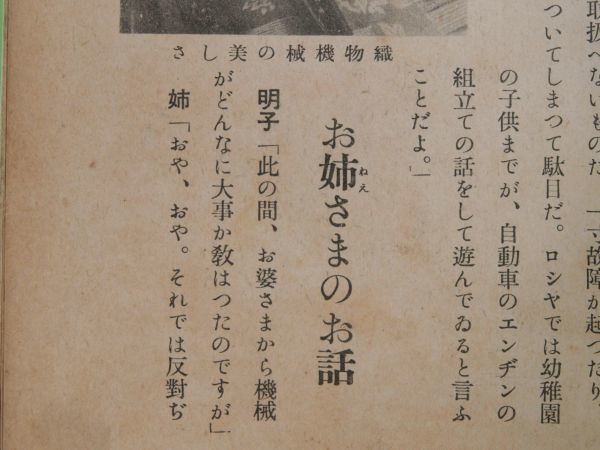 取扱へないものだ。一寸故障が起つたり、
ついてしまつて駄目だ。ロシヤでは幼稚園
の子供までが、自動車のエンヂンの
組立ての話をして遊んでゐると言ふ
ことだよ。」
織物機械の美しさ
お姉さまのお話
ねえ
明子「此の間、お婆さまから機械
がどんなに大事か教はつたのですが」
姉「おや、おや。それでは反對ぢ